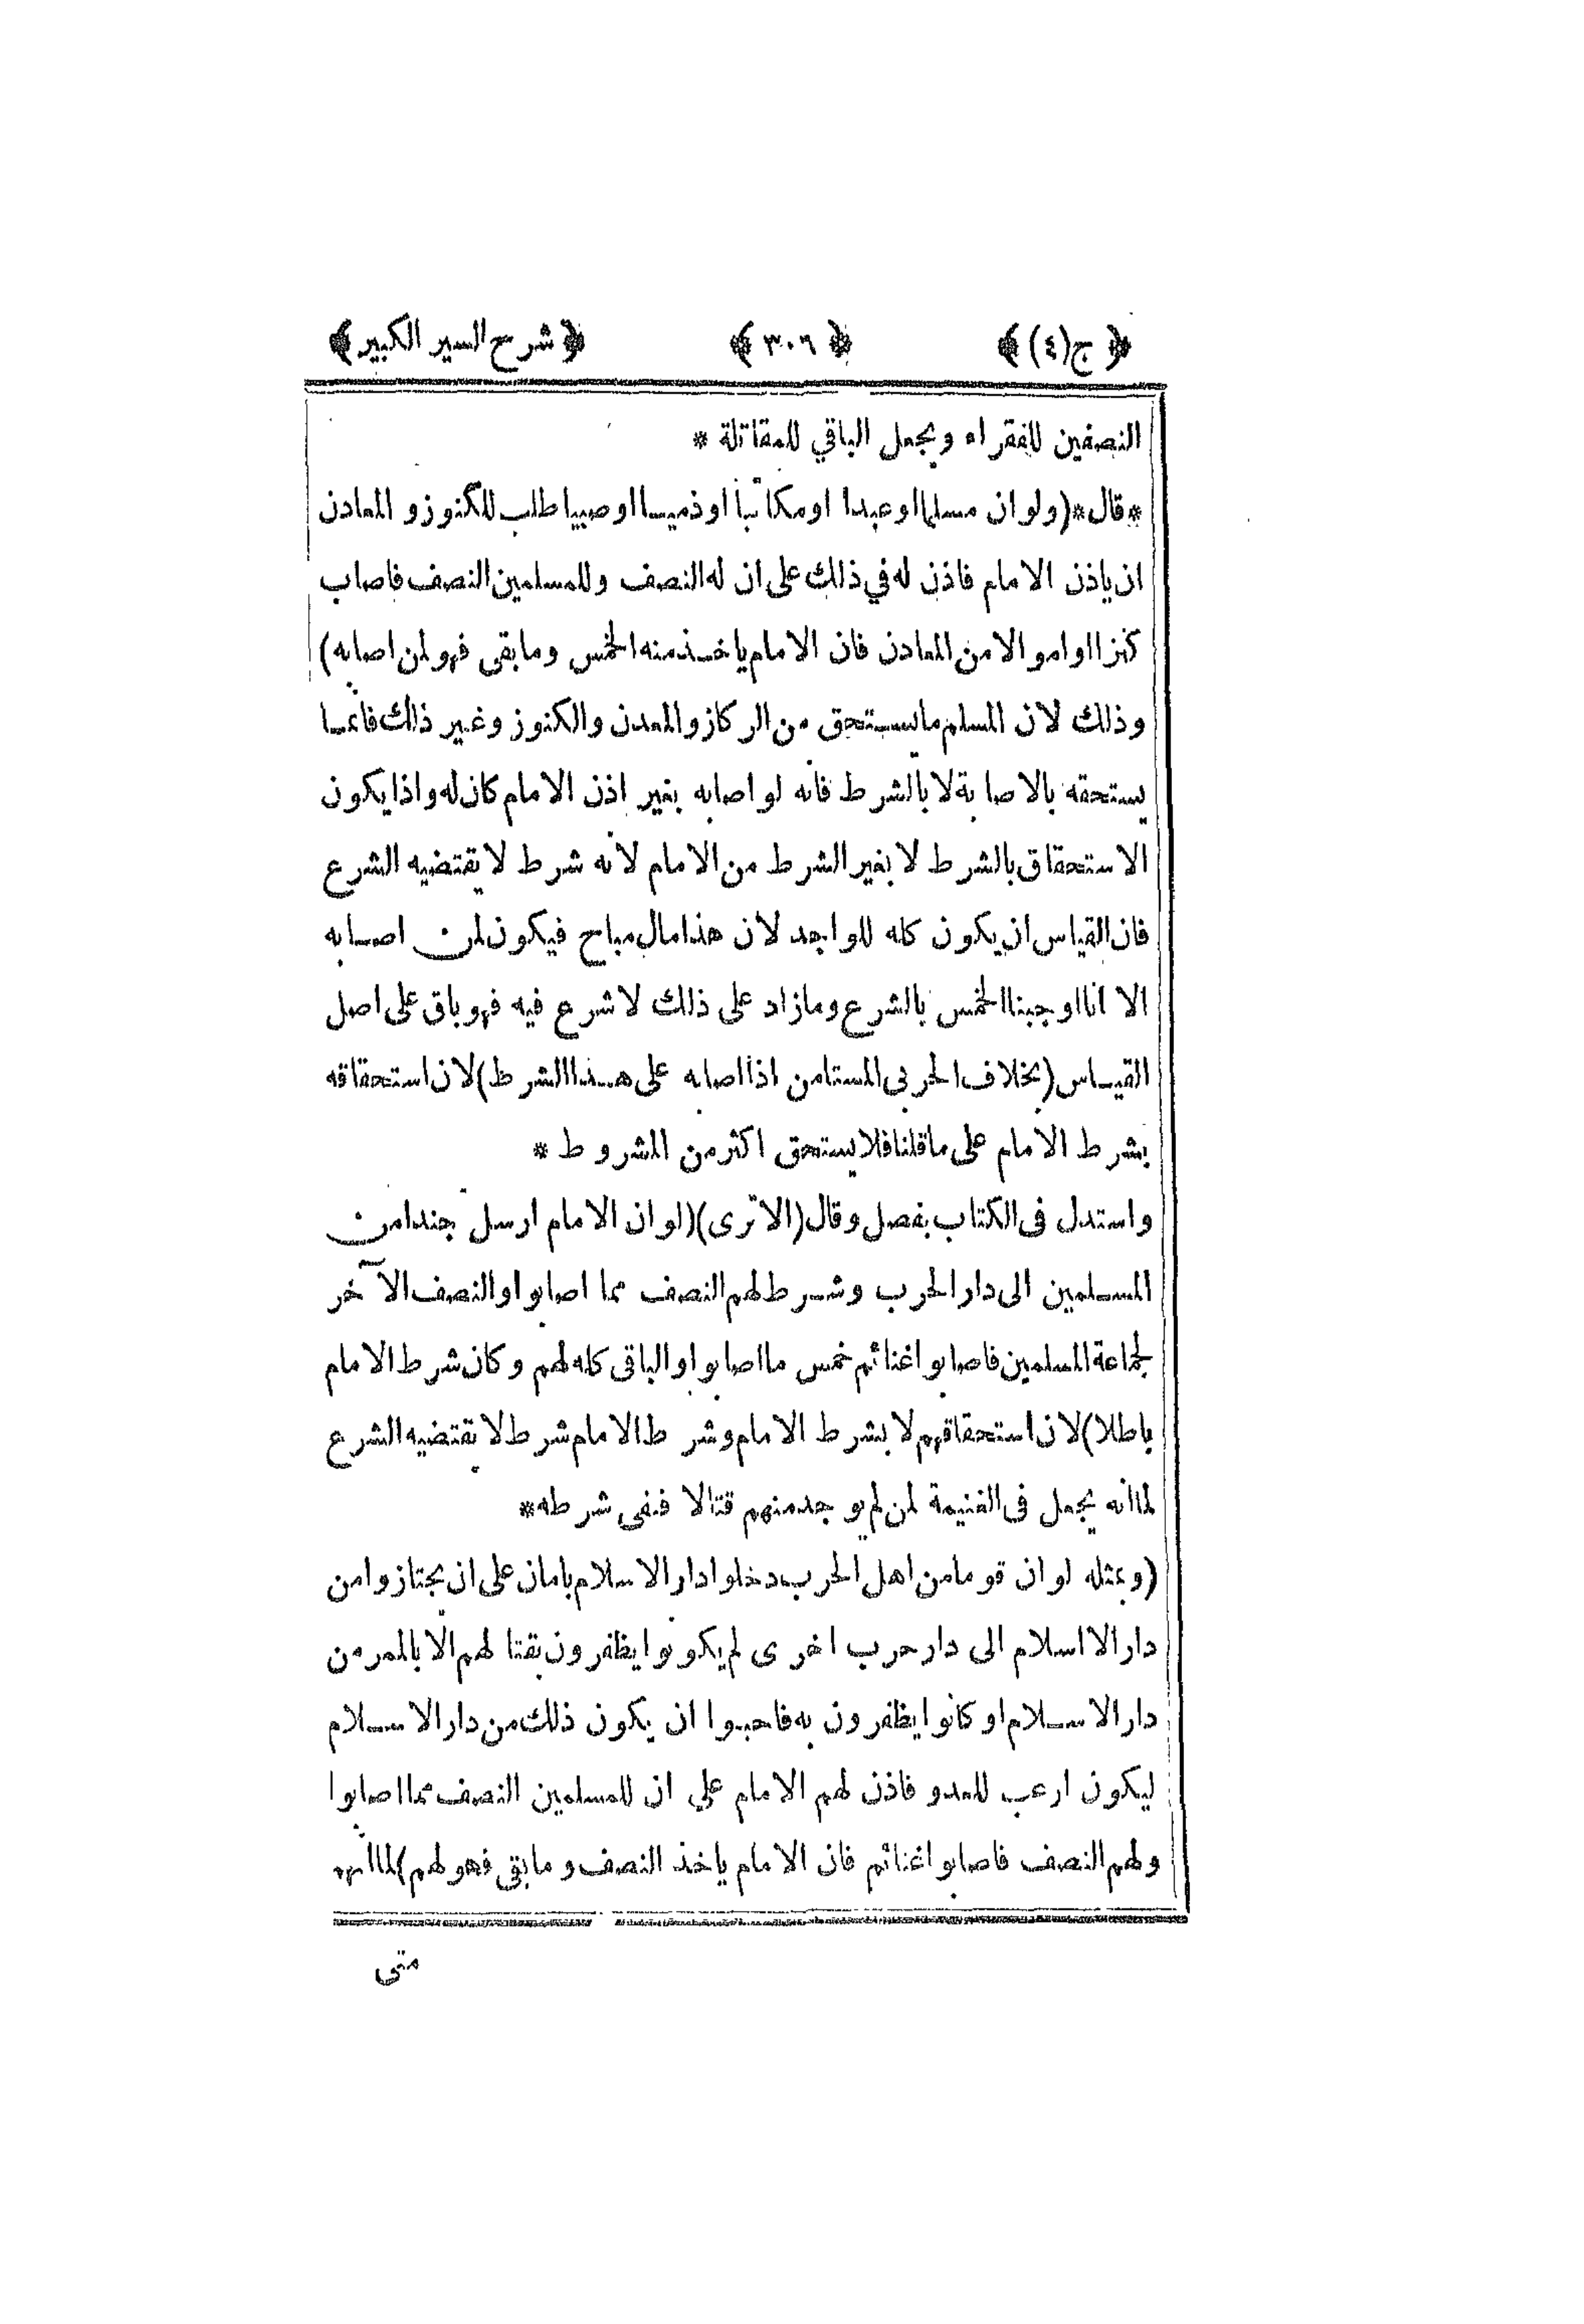 ﴿ ج(٤) ﴾ ﴿ ٣٠٦ ﴾ ﴿ شرح السير الكبير ﴾
النصفين للفقراء ويجعل الباقي للمقاتلة *
*قال*(ولو ان مسلما او عبدا او مكاتبا او ذميا او صبيا طلب للكنوز و المعادن
ان ياذن الامام فاذن له في ذلك على ان له النصف وللمسلمين النصف فاصاب
كنزا او اموالا من المعادن فان الامام ياخذ منه الخمس وما بقى فهو لمن اصابه)
وذلك لان المسلم ما يستحق من الركاز والمعدن والكنوز وغير ذلك فانما
يستحقه بالاصابة لا بالشرط فانه لو اصابه بغير اذن الامام كان له واذا يكون
الاستحقاق بالشرط لا بغير الشرط من الامام لانه شرط لا يقتضيه الشرع
فان القياس ان يكون كله للواجد لان هذا مال مباح فيكون لمن اصابه
الا انا اوجبنا الخمس بالشرع وما زاد على ذلك لا شرع فيه فهو باق على اصل
القياس (بخلاف الحربى المستامن اذا اصابه على هذا الشرط) لان استحقاقه
بشرط الامام على ما قلنا فلا يستحق اكثر من المشروط *
واستدل فى الكتاب بفصل وقال (الا ترى)(لو ان الامام ارسل جندا من
المسلمين الى دار الحرب وشرط لهم النصف مما اصابوا والنصف الآخر
لجماعة المسلمين فاصابوا غنائم خمس ما اصابوا والباقى كله لهم وكان شرط الامام
باطلا) لان استحقاقهم لا بشرط الامام وشرط الامام شرط لا يقتضيه الشرع
لما انه يجعل فى الغنيمة لمن لم يوجد منهم قتالا فنفى شرطه*
(وبمثله لو ان قوما من اهل الحرب دخلوا دار الاسلام بامان على ان يجتازوا من
دار الا اسلام الى دار حرب اخرى لم يكونوا يظفرون بقتا لهم الا بالممر من
دار الاسلام او كانوا يظفرون به فاحبوا ان يكون ذلك من دار الاسلام
ليكون ارعب للعدو فاذن لهم الامام علي ان للمسلمين النصف مما اصابوا
ولهم النصف فاصابوا غنائم فان الامام ياخذ النصف وما بقى فهو لهم) لما انهم
متى